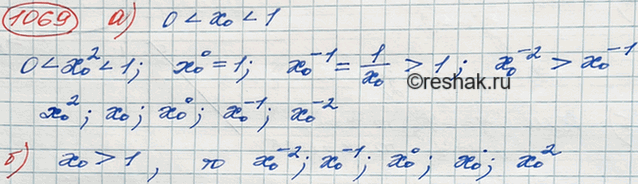 1069 а) 0 < x₀ < 1
0 < x₀² < 1; x₀⁰ = 1; x₀⁻¹ = 1/x₀ > 1; x₀⁻² > x₀⁻¹
©reshak.ru
x₀²; x₀; x₀⁰; x₀⁻¹; x₀⁻²
б) x₀ > 1, то x₀⁻²; x₀⁻¹; x₀⁰; x₀; x₀²